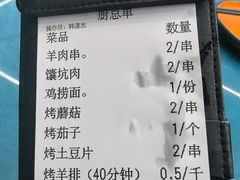 厨总单
操作员：韩潇杰
菜品 数量
羊肉串。 2/串
馕坑肉 2/串
鸡捞面。 1/份
烤蘑菇 2/串
烤茄子 1/个
烤土豆片 2/串
烤羊排（40分钟） 0.5/千